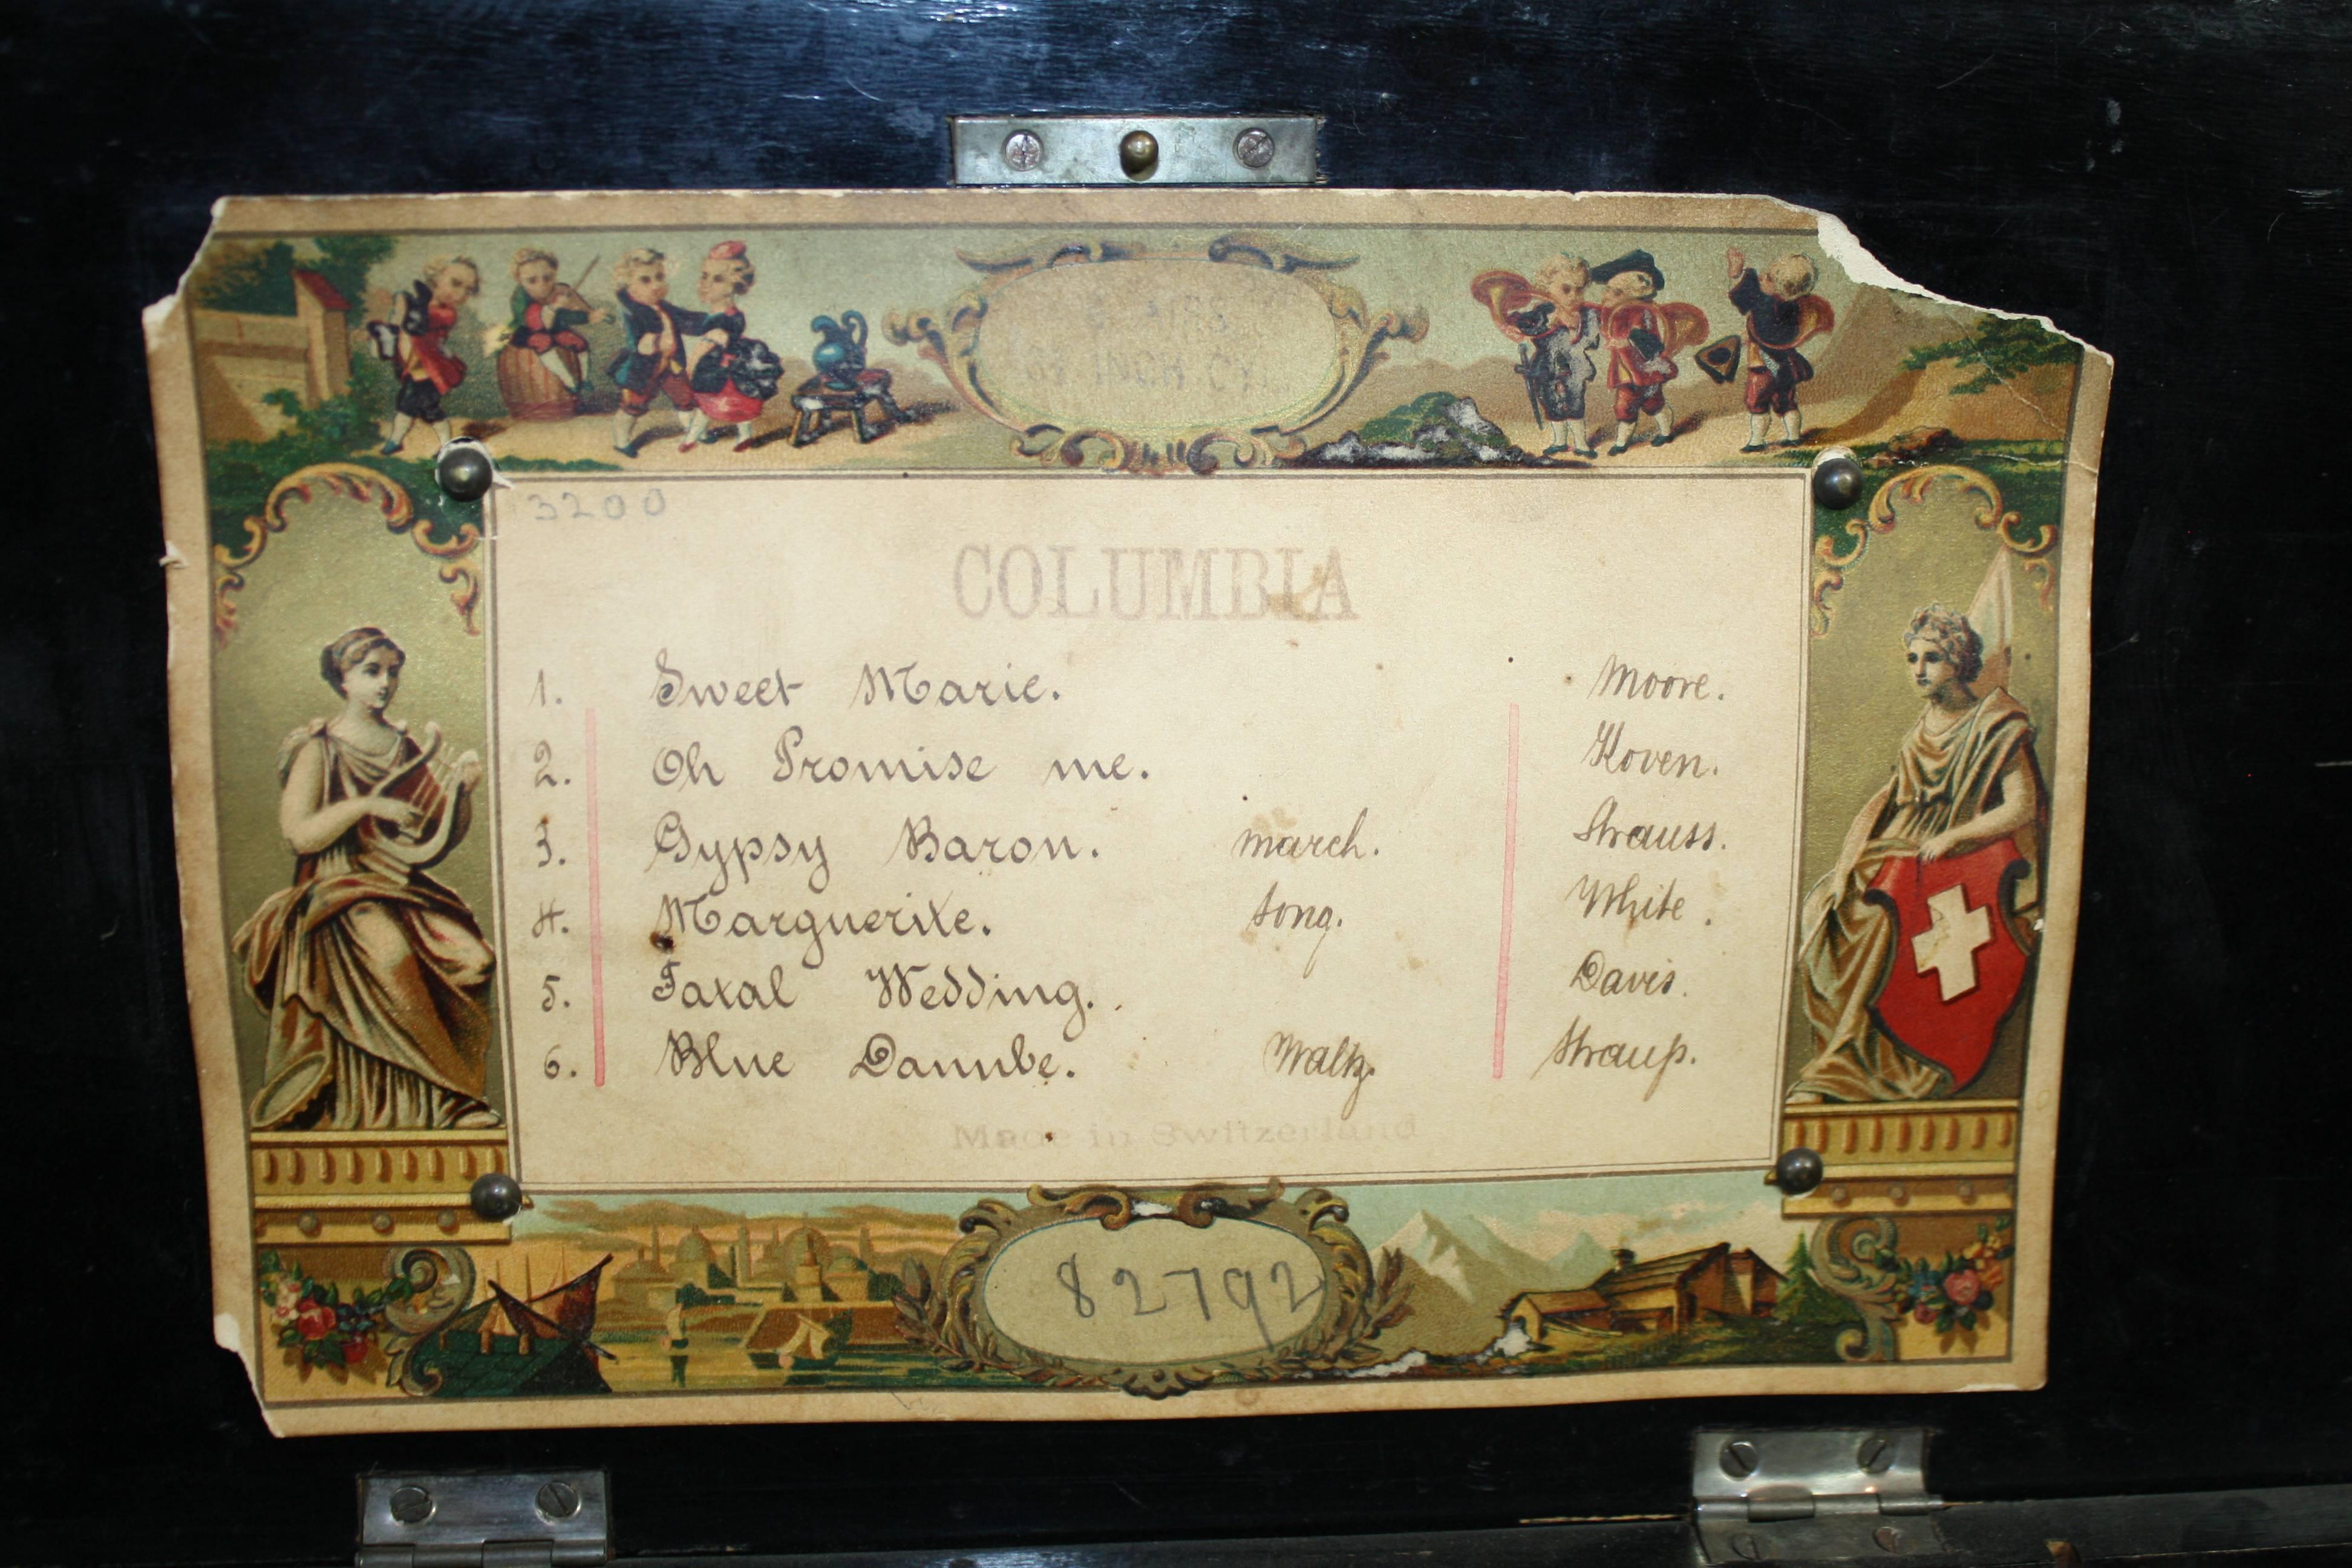 INCH
3200
COLUMBIA
1. Sweet Marie. Moore.
2. Oh Promise me. Koven.
3. Gypsy Baron. march. Strauss.
4. Marguerite. song. White.
5. Fatal Wedding. Davis.
6. Blue Danube. Waltz. Strauß.
Made in Switzerland
82792